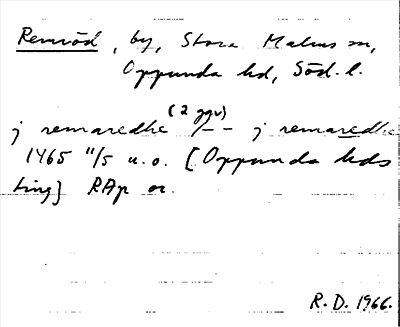 Remröd, by, Stora Malms sn,
Oppunda hd, Söd. l.
(2 ggr)
j remaredhe /-- j remaredhe
1465 11/5 u.o. [Oppunda hds
ting] RAp or.
R.D. 1966.